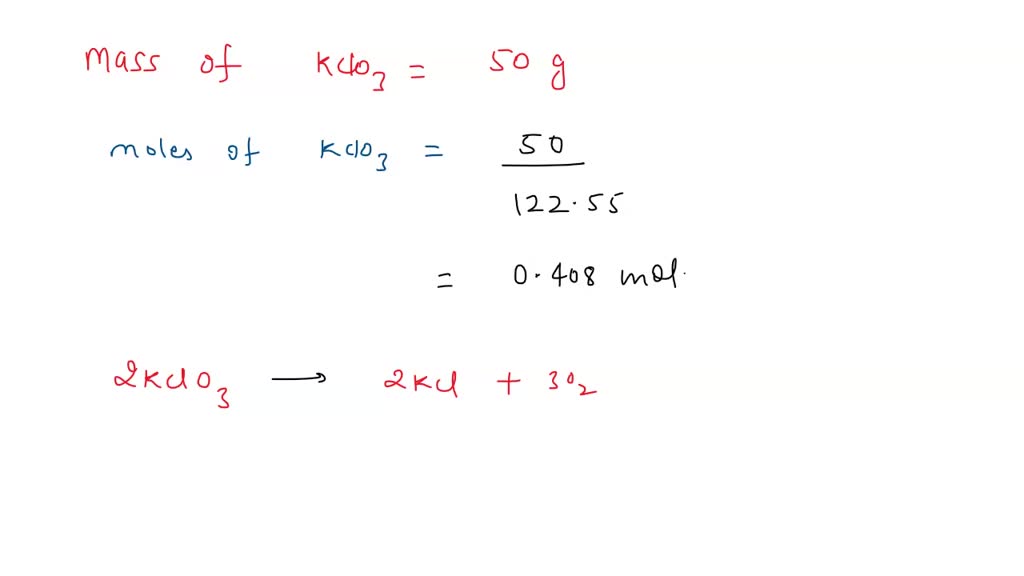 Mass of KClO3 = 50 g
moles of KClO3 = 50
122.55
= 0.408 mol.
2KClO3 → 2KCl + 3O2